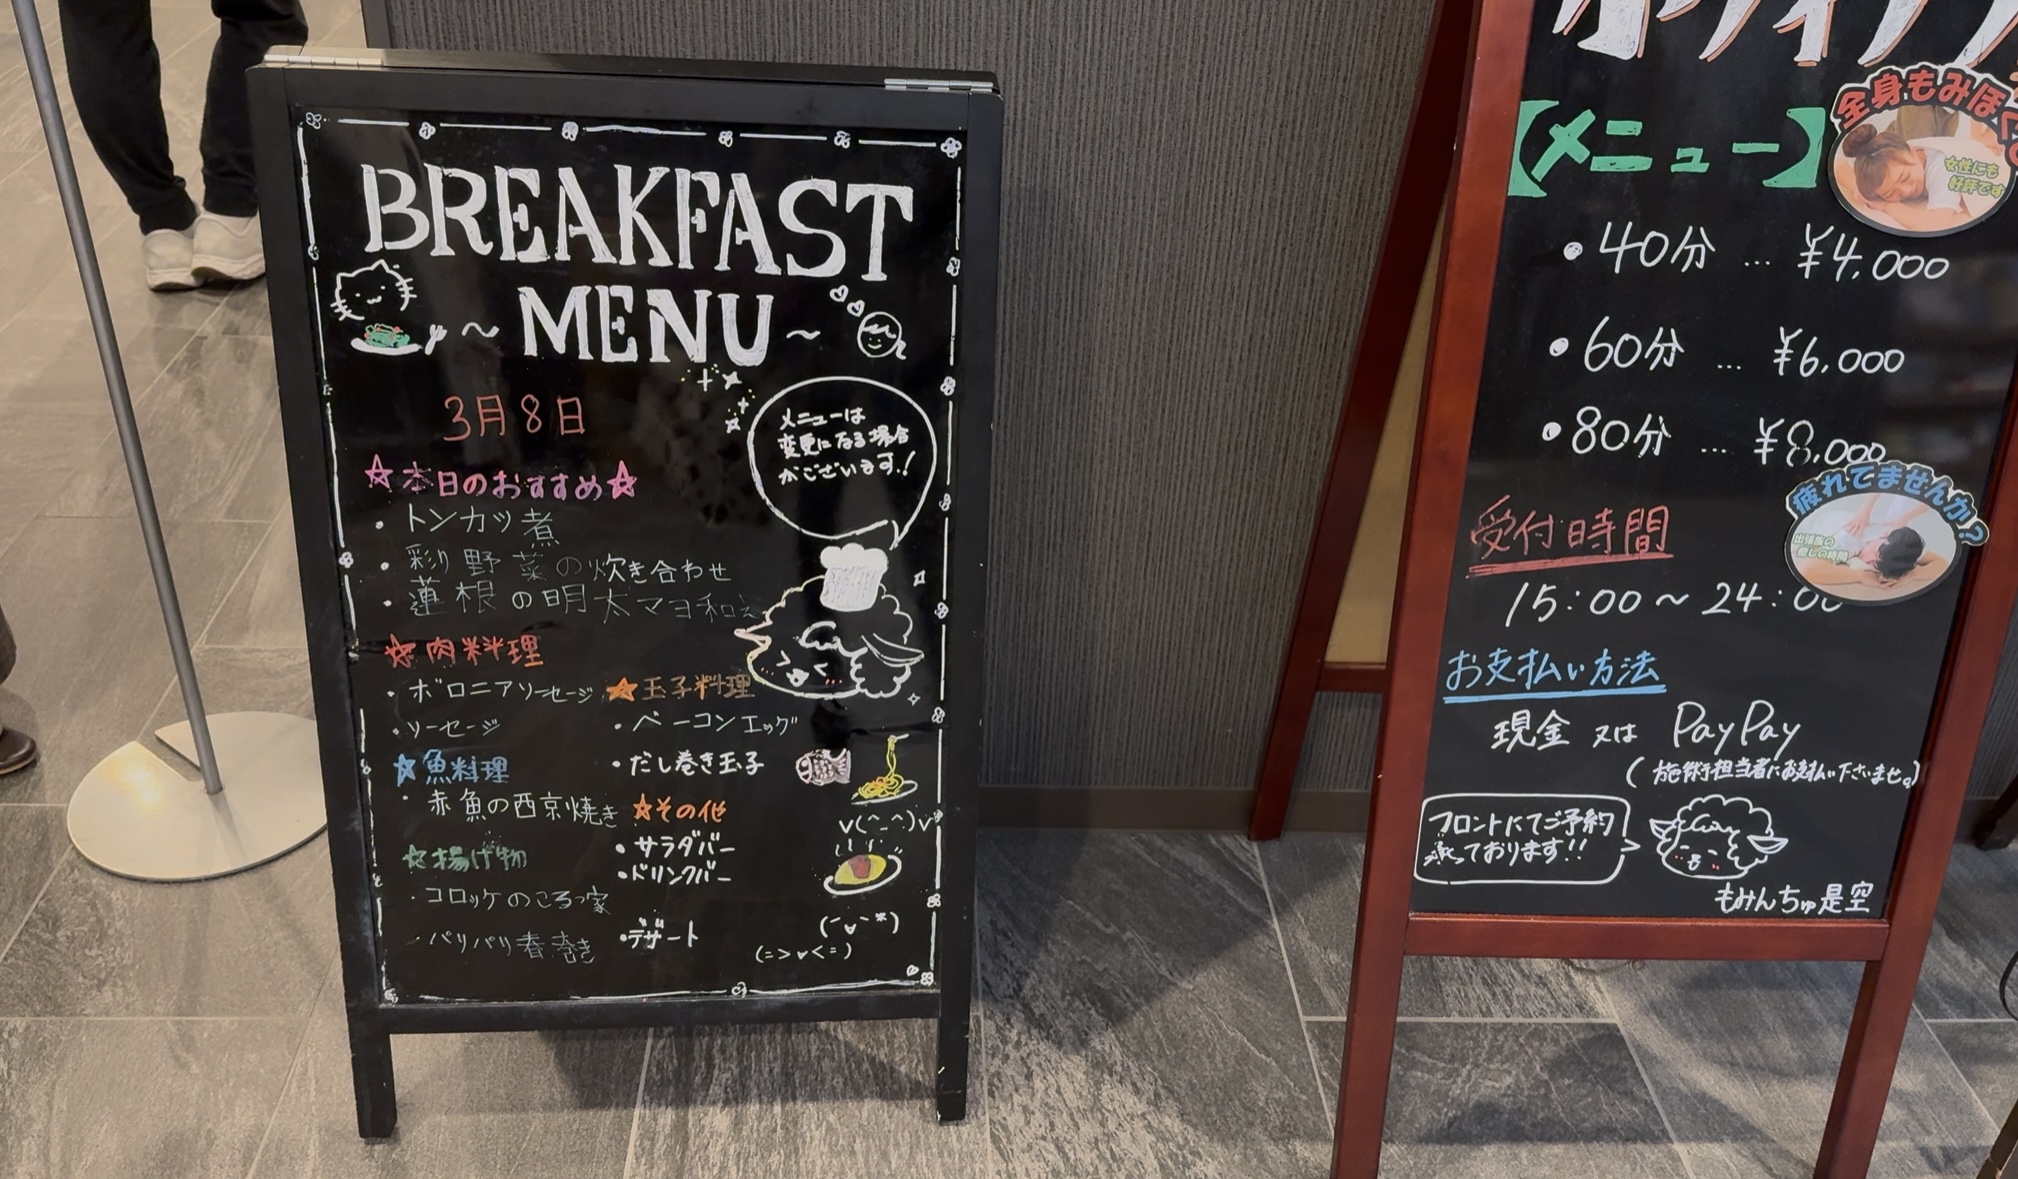 BREAKFAST
～ MENU ～
3月8日
メニューは
変更になる場合
がございます!
☆本日のおすすめ☆
・トンカツ煮
・彩り野菜の炊き合わせ
・蓮根の明太マヨ和え
☆肉料理
・ボロニアソーセージ
・ソーセージ
☆魚料理
・赤魚の西京焼き
☆揚げ物
・コロッケのころっ家
・パリパリ春巻き
☆玉子料理
・ベーコンエッグ
・だし巻き玉子
☆その他
・サラダバー
・ドリンクバー
・デザート
v(^_^)v
【メニュー】
全身もみほぐし
女性にも
好評です
・40分 … ¥4,000
・60分 … ¥6,000
・80分 … ¥8,000
疲れてませんか?
出張族の
癒しの時間
受付時間
15:00～24:00
お支払い方法
現金 又は PayPay
(施術担当者にお支払い下さいませ。)
フロントにてご予約
承っております!!
もみんちゅ是空